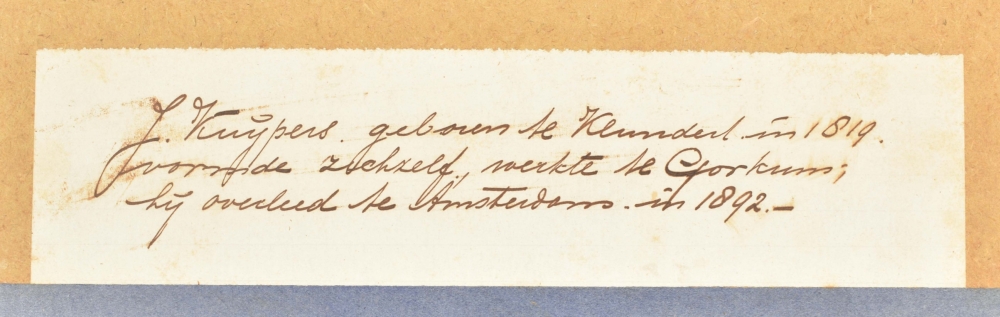 J. Kuÿpers. geboren te Klundert in 1819.
vormde zichzelf., werkte te Gorkum;
hÿ overleed te Amsterdam. in 1892.—